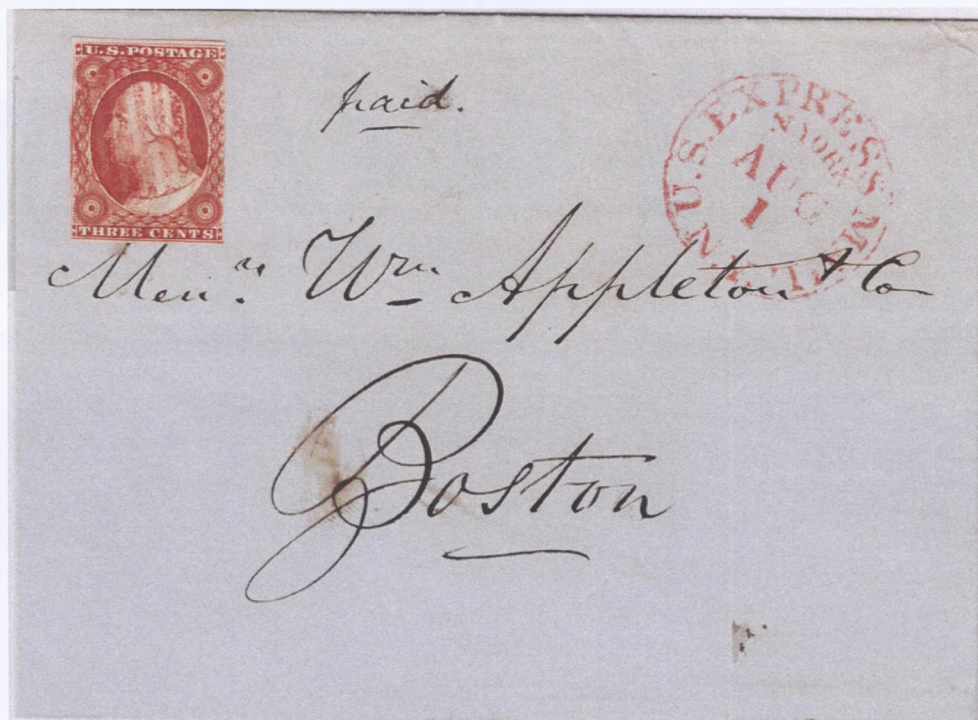 U.S. POSTAGE
THREE CENTS
paid.
U.S. EXPRESS MAIL
N. YORK
AUG
1
N.Y.
Messrs. Wm Appleton & Co
Boston